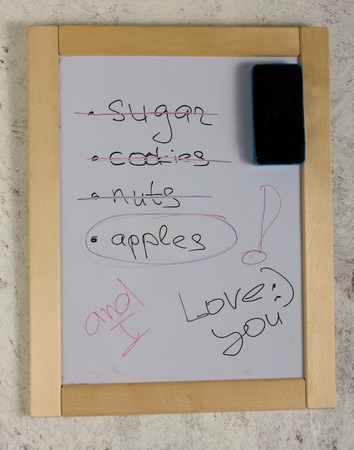 • sugar
• cookies
• nuts
• apples
!
and I
Love :)
you